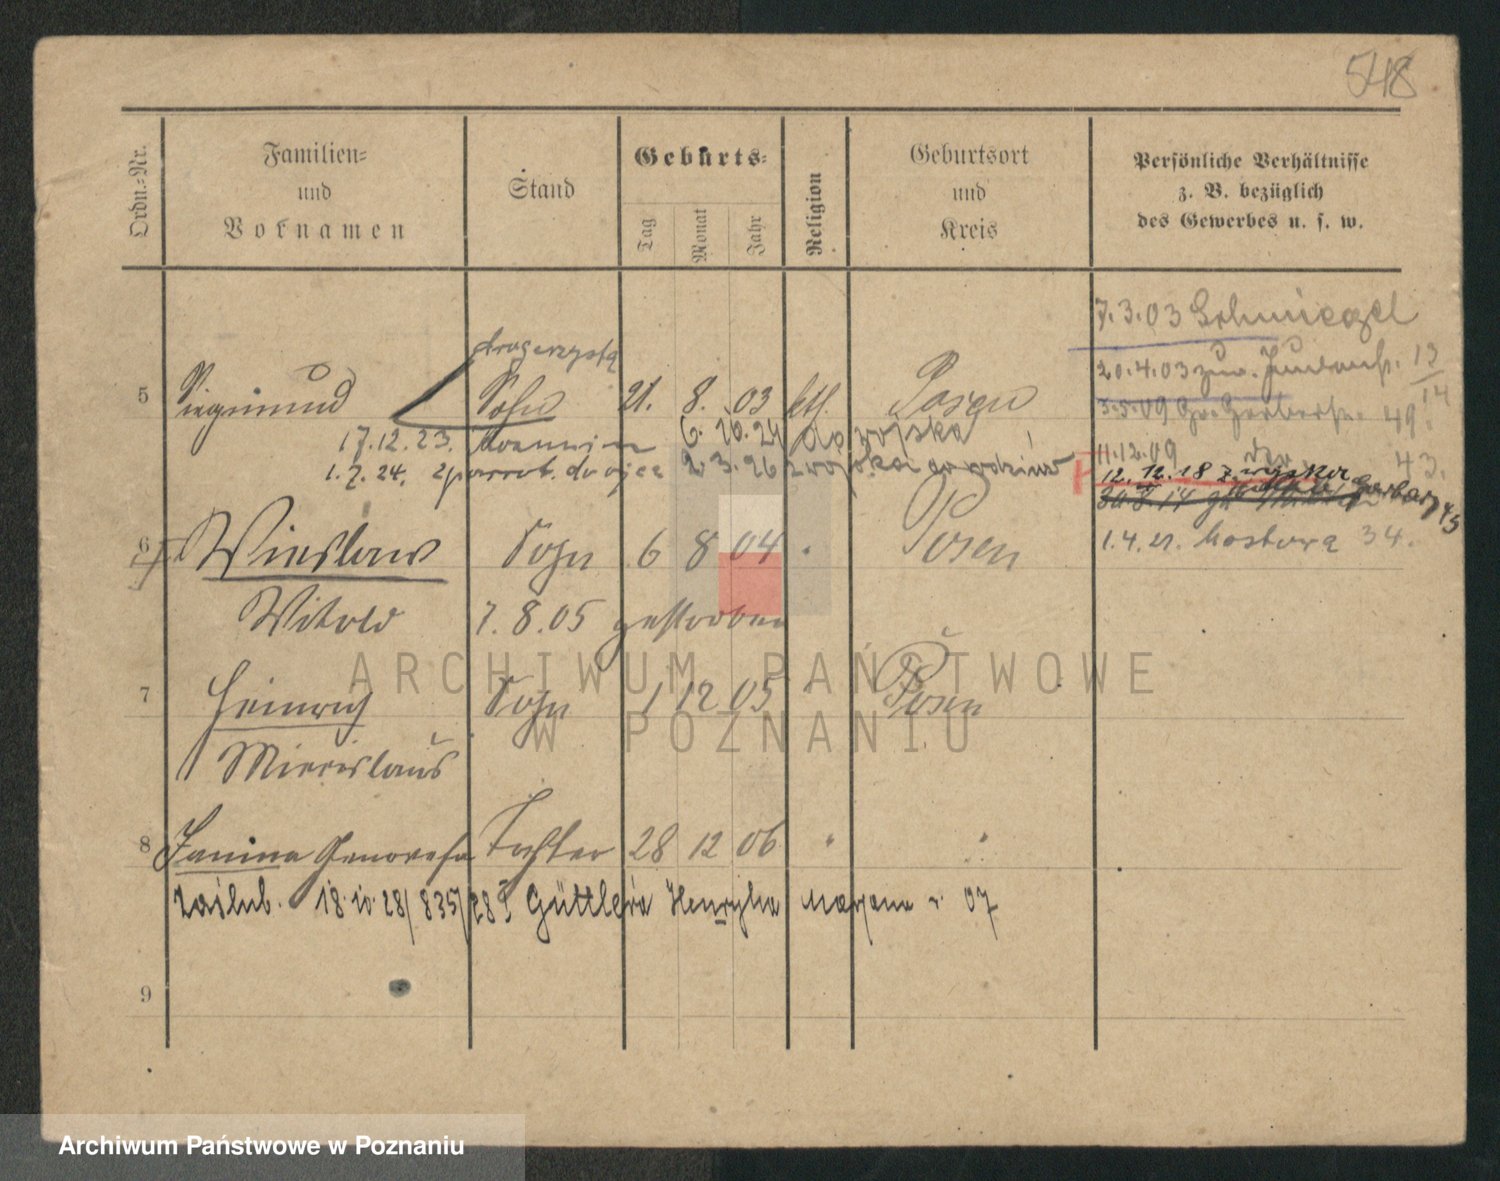 548
Ordn.-Nr.
Familien- und Vornamen
Stand
Geburts-
Tag Monat Jahr
Religion
Geburtsort und Kreis
Persönliche Verhältnisse z. B. bezüglich des Gewerbes u. s. w.
7.3.03 Schmiegel
drogerzysta
20.4.03 13/14
5 Siegmund Sohn 21. 8. 03 kth. Posen
3.5.09 Gr. Gerberstr. 49.
17.12.23. 6.10.24 do wojska
11.12.09 43.
1.7.24. do ojca 2.3.26 z wojska do rodziców
12.12.18 z wojska Garbary 43
6 Wieslaw Sohn 6 8 04 " Posen
1.4.21. Mostowa 34.
Witold 7.8.05 gestorben
ARCHIWUM PAŃSTWOWE
7 Heinrich Sohn 1 12 05 " Posen
W POZNANIU
Miecislaus
8 Janina Genovefa Tochter 28 12 06 " "
Zaślub. 18.10.28/835/28 Güttlera Henryka Marjana r. 07
9
Archiwum Państwowe w Poznaniu